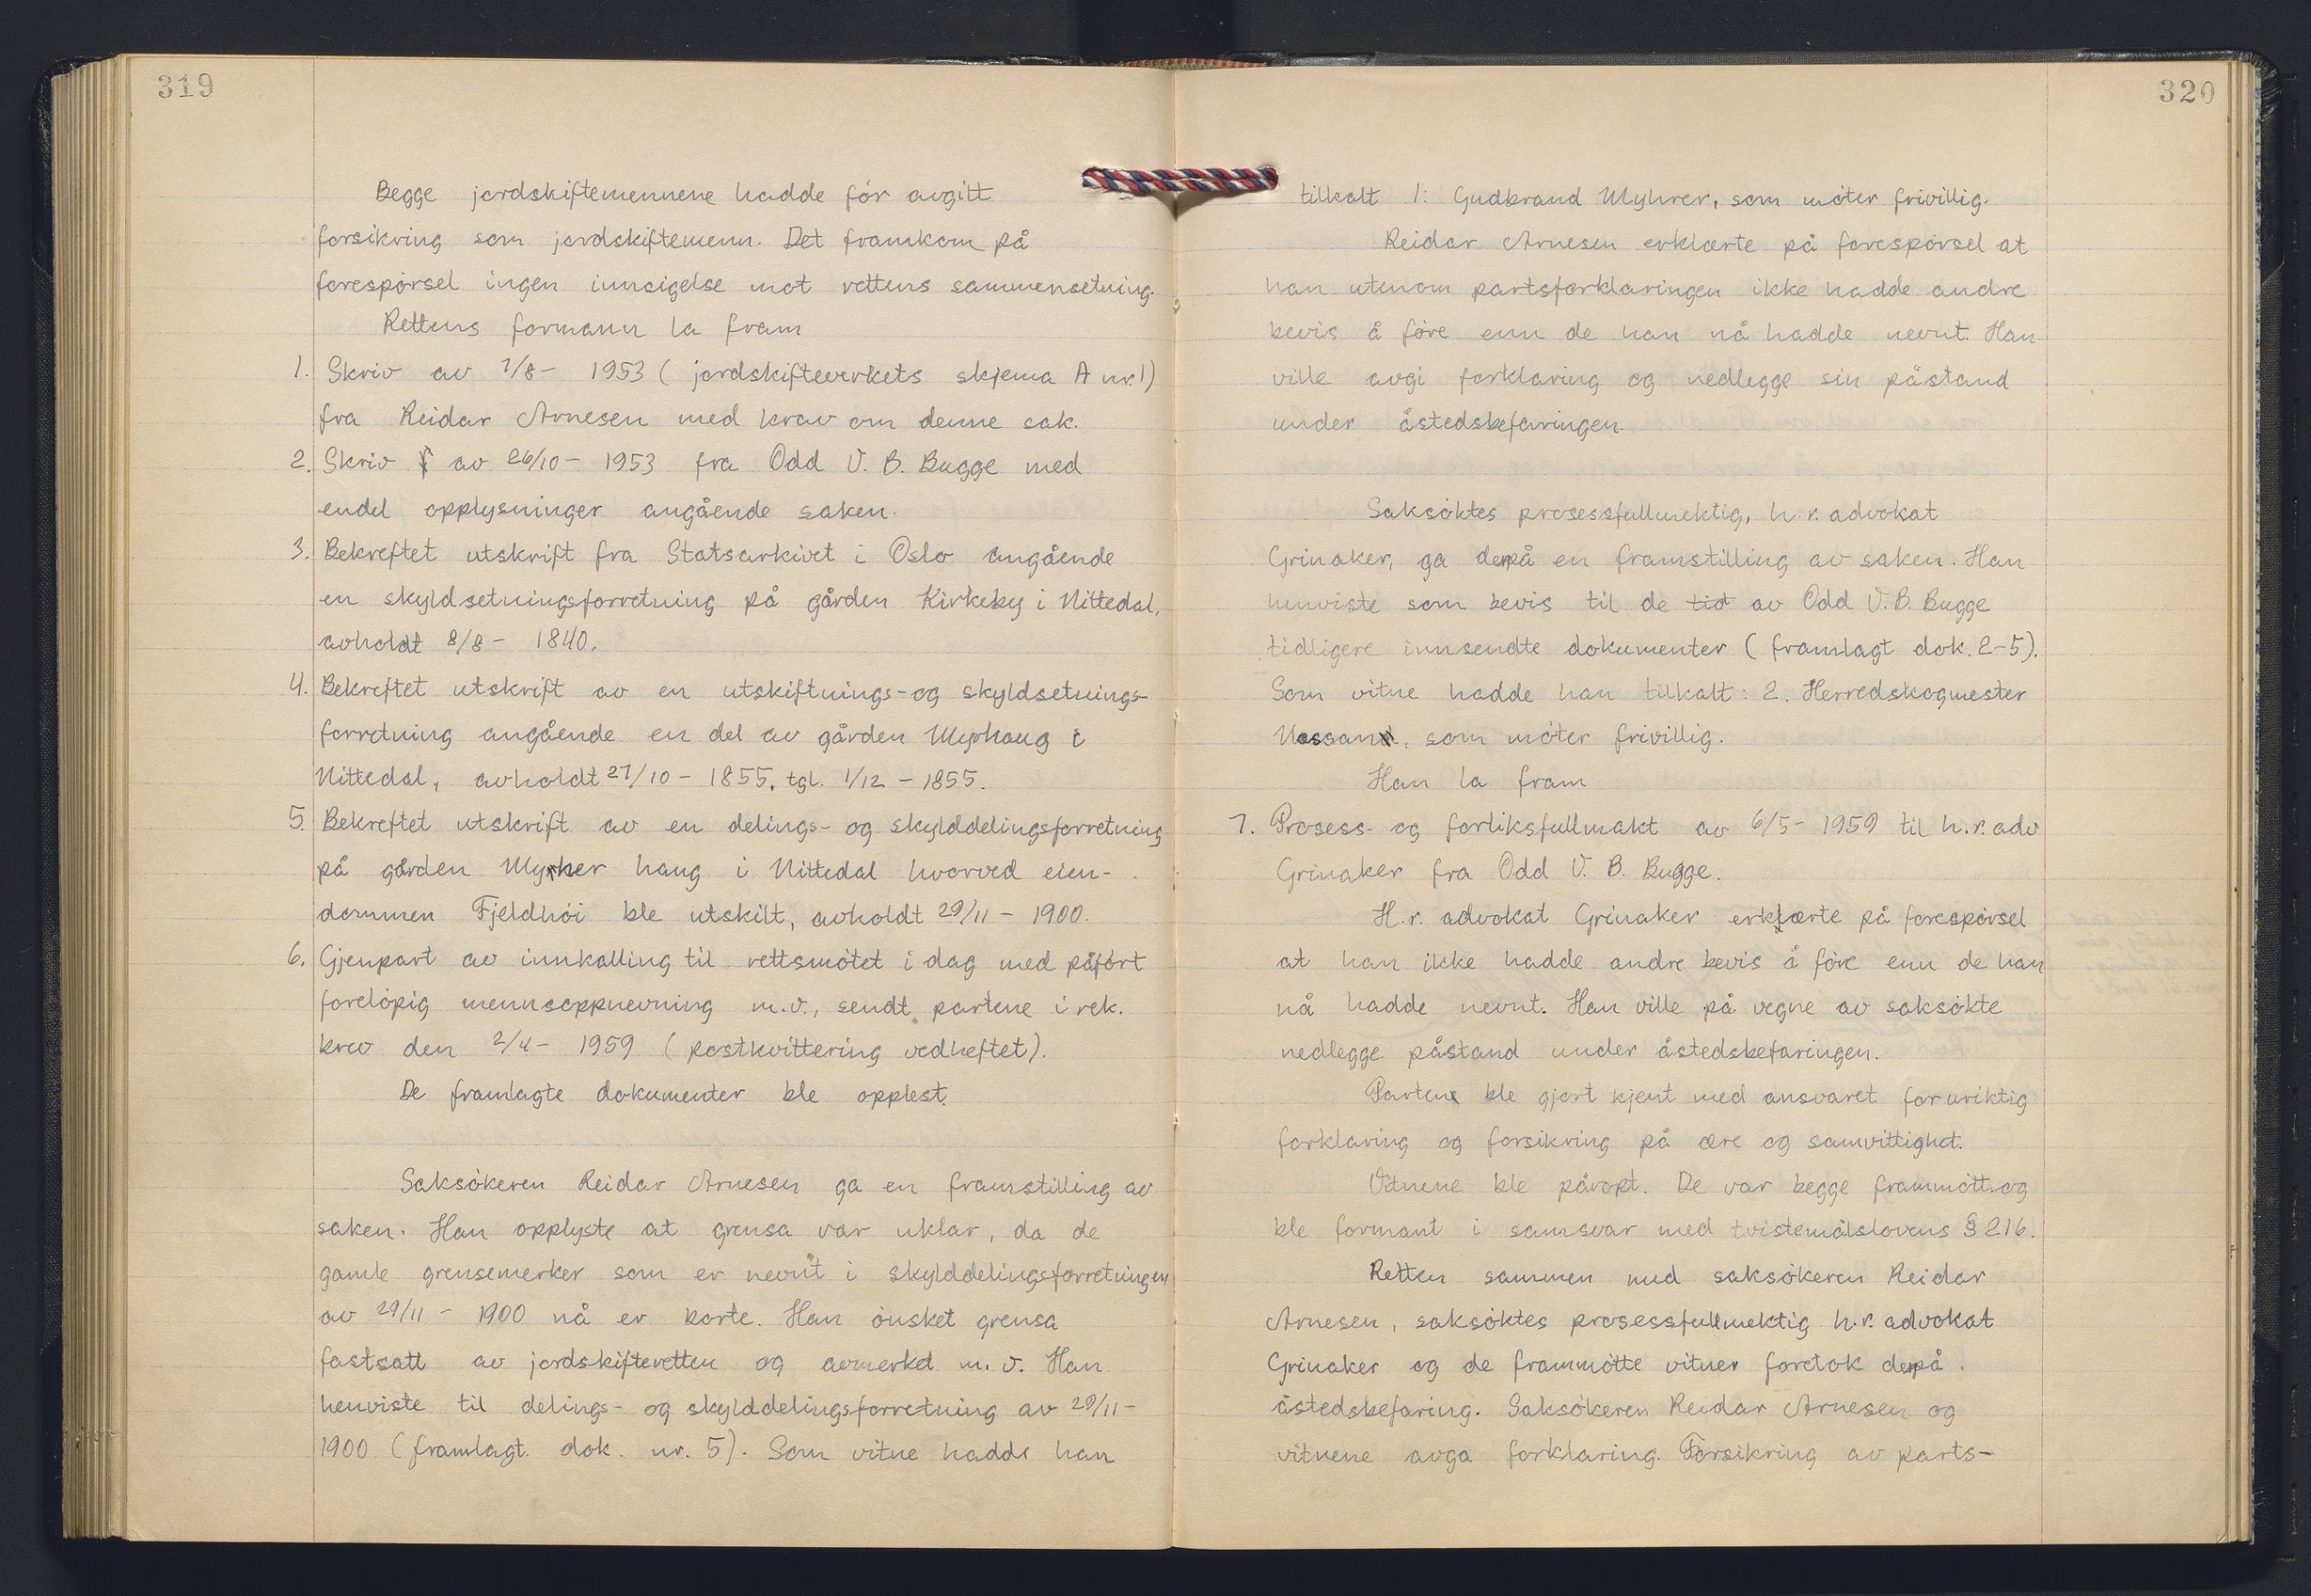 319
Begge jordskiftemennene hadde för avgitt
forsikring som jordskiftemenn. Det framkom på
forespörsel ingen innsigelse mot rettens sammensetning.
Rettens formann la fram
1. Skriv av 7/8- 1953 (jordskifteverkets skjema A nr. 1)
fra Reidar Arnesen med krav om denne sak.
2. Skriv av 26/10- 1953 fra Odd V. B. Bugge med
endel opplysninger angående saken.
3. Bekreftet utskrift fra Statsarkivet i Oslo angående
en skyldsetningsforretning på gården Kirkeby i Nittedal,
avholdt 8/8- 1840.
4. Bekreftet utskrift av en utskiftnings- og skyldsetnings-
forretning angående en del av gården Myrhaug i
Nittedal, avholdt 27/10- 1855, tgl. 1/12 - 1855.
5. Bekreftet utskrift av en delings- og skylddelingsforretning
på gården haug i Nittedal hvorved eien-
dommen Fjeldhöi ble utskilt, avholdt 29/11- 1900.
6. Gjenpart av innkalling til rettsmötet i dag med påfört
forelöpig mennsoppnevning m.v., sendt partene i rek.
brev den 2/4- 1959 (postkvittering vedheftet).
De framlagte dokumenter ble opplest.
Saksökeren Reidar Arnesen ga en framstilling av
saken. Han opplyste at grensa var uklar, da de
gamle grensemerker som er nevnt i skylddelingsforretningen
av 29/11- 1900 nå er borte. Han önsket grensa
fastsatt av jordskifteretten og avmerket m. v. Han
henviste til delings- og skylddelingsforretning av 29/11-
1900 (framlagt dok. nr. 5). Som vitne hadde han
320
tilkalt 1: Gudbrand Myhrer, som möter frivillig.
Reidar Arnesen erklærte på forespörsel at
han utenom partsforklaringen ikke hadde andre
bevis å före enn de han nå hadde nevnt. Han
ville avgi forklaring og nedlegge sin påstand
under åstedsbefaringen.
Saksöktes prosessfullmektig, h.r. advokat
Grinaker, ga derpå en framstilling av saken. Han
henviste som bevis til de tid av Odd V. B. Bugge
tidligere innsendte dokumenter (framlagt dok. 2-5).
Som vitne hadde han tilkalt: 2. Herredskogmester
som möter frivillig.
Han la fram
7. Prosess- og forliksfullmakt av 6/5- 1959 til h.r. adv
Grinaker fra Odd V. B. Bugge.
H.r. advokat Grinaker erklærte på forespörsel
at han ikke hadde andre bevis å före enn de han
nå hadde nevnt. Han ville på vegne av saksökte
nedlegge påstand under åstedsbefaringen.
Partene ble gjort kjent med ansvaret for uriktig
forklaring og forsikring på ære og samvittighet.
Vitnene ble påropt. De var begge frammött og
ble formant i samsvar med tvistemålslovens § 216.
Retten sammen med saksökeren Reidar
Arnesen, saksöktes prosessfullmektig h.r. advokat
Grinaker og de frammötte vitner foretok derpå
åstedsbefaring. Saksökeren Reidar Arnesen og
vitnene avga forklaring. Forsikring av parts-